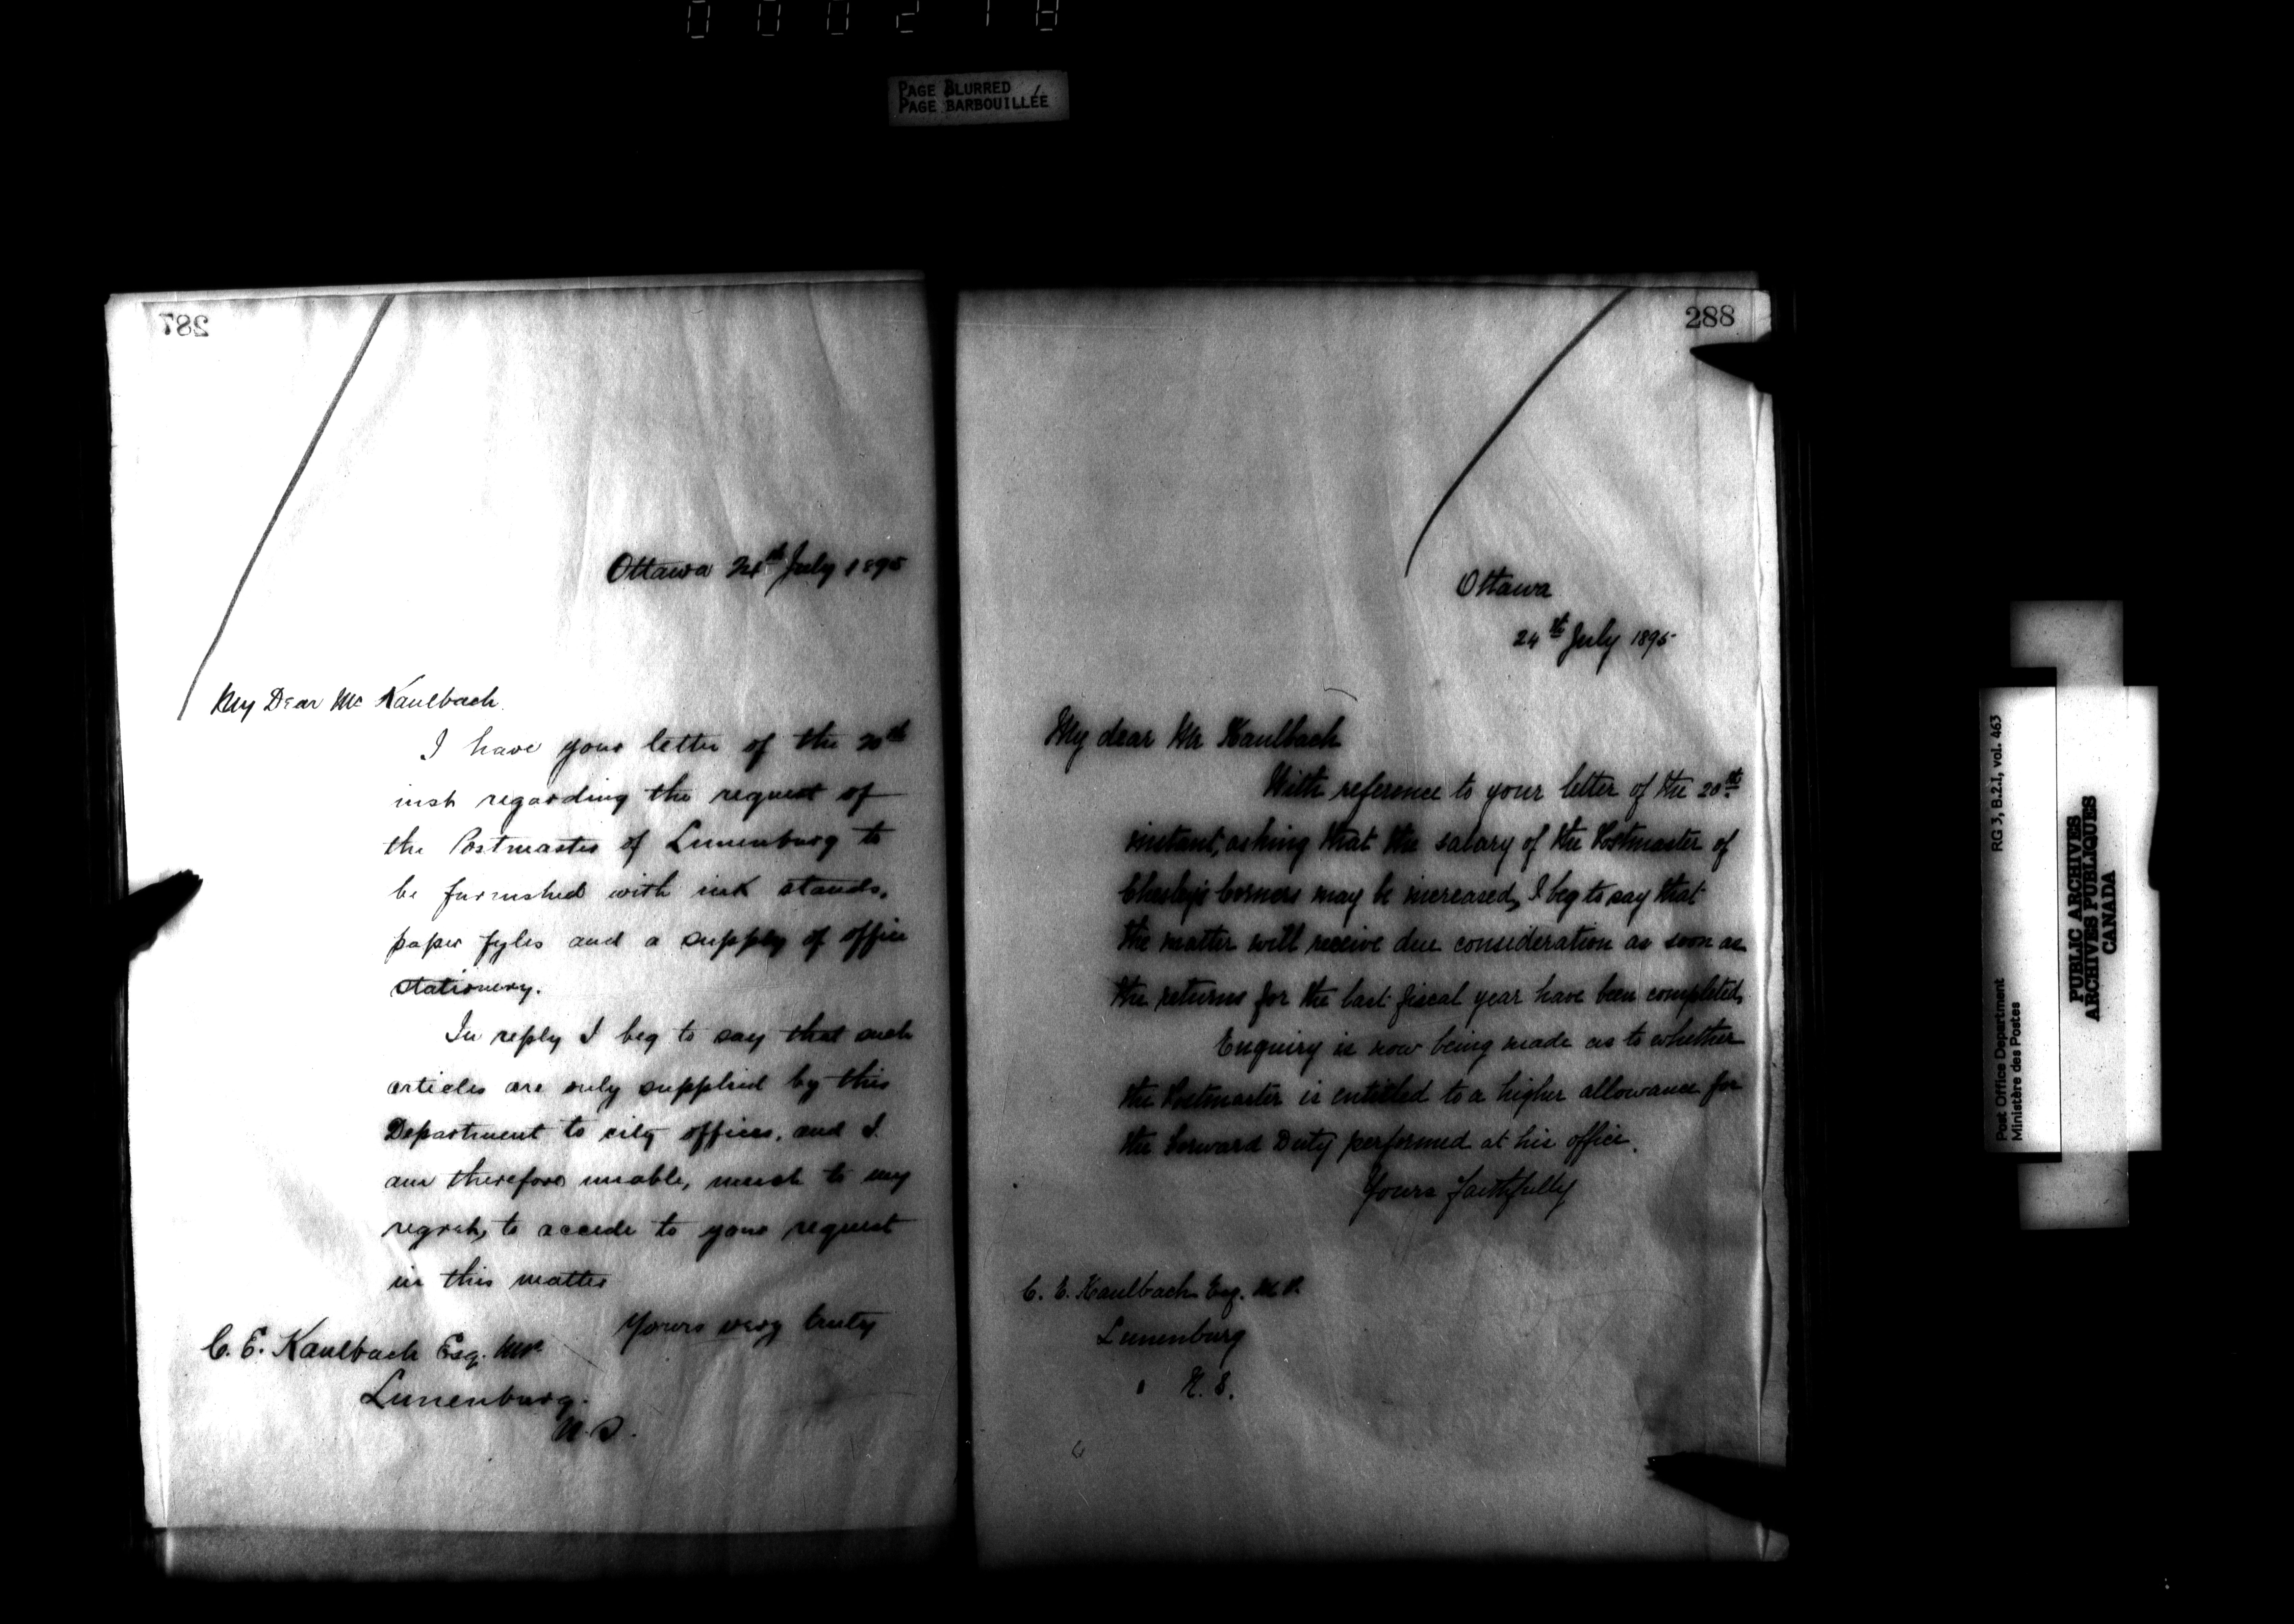 000218
PAGE BLURRED
PAGE BARBOUILLÉE
287
Ottawa 24th July 1895
My Dear Mr Kaulbach.
I have your letter of the 20th
inst regarding the request of
the Postmaster of Lunenburg to
be furnished with ink stands,
paper fyles and a supply of office
stationery.
In reply I beg to say that such
articles are only supplied by this
Department to city offices, and I
am therefore unable, much to my
regret, to accede to your request
in this matter
Yours very truly
C. E. Kaulbach Esq. MP.
Lunenburg.
N.S.
288
Ottawa
24th July 1895
My dear Mr Kaulbach
With reference to your letter of the 20th
instant, asking that the salary of the Postmaster of
Corners may be increased, I beg to say that
the matter will receive due consideration as soon as
the returns for the last fiscal year have been completed.
Enquiry is now being made as to whether
the Postmaster is entitled to a higher allowance for
the forward Duty performed at his office.
Yours faithfully
C. E. Kaulbach Esq. M.P.
Lunenburg
N. S.
Post Office Department
Ministère des Postes
RG 3, B.2.I, vol. 463
PUBLIC ARCHIVES
ARCHIVES PUBLIQUES
CANADA